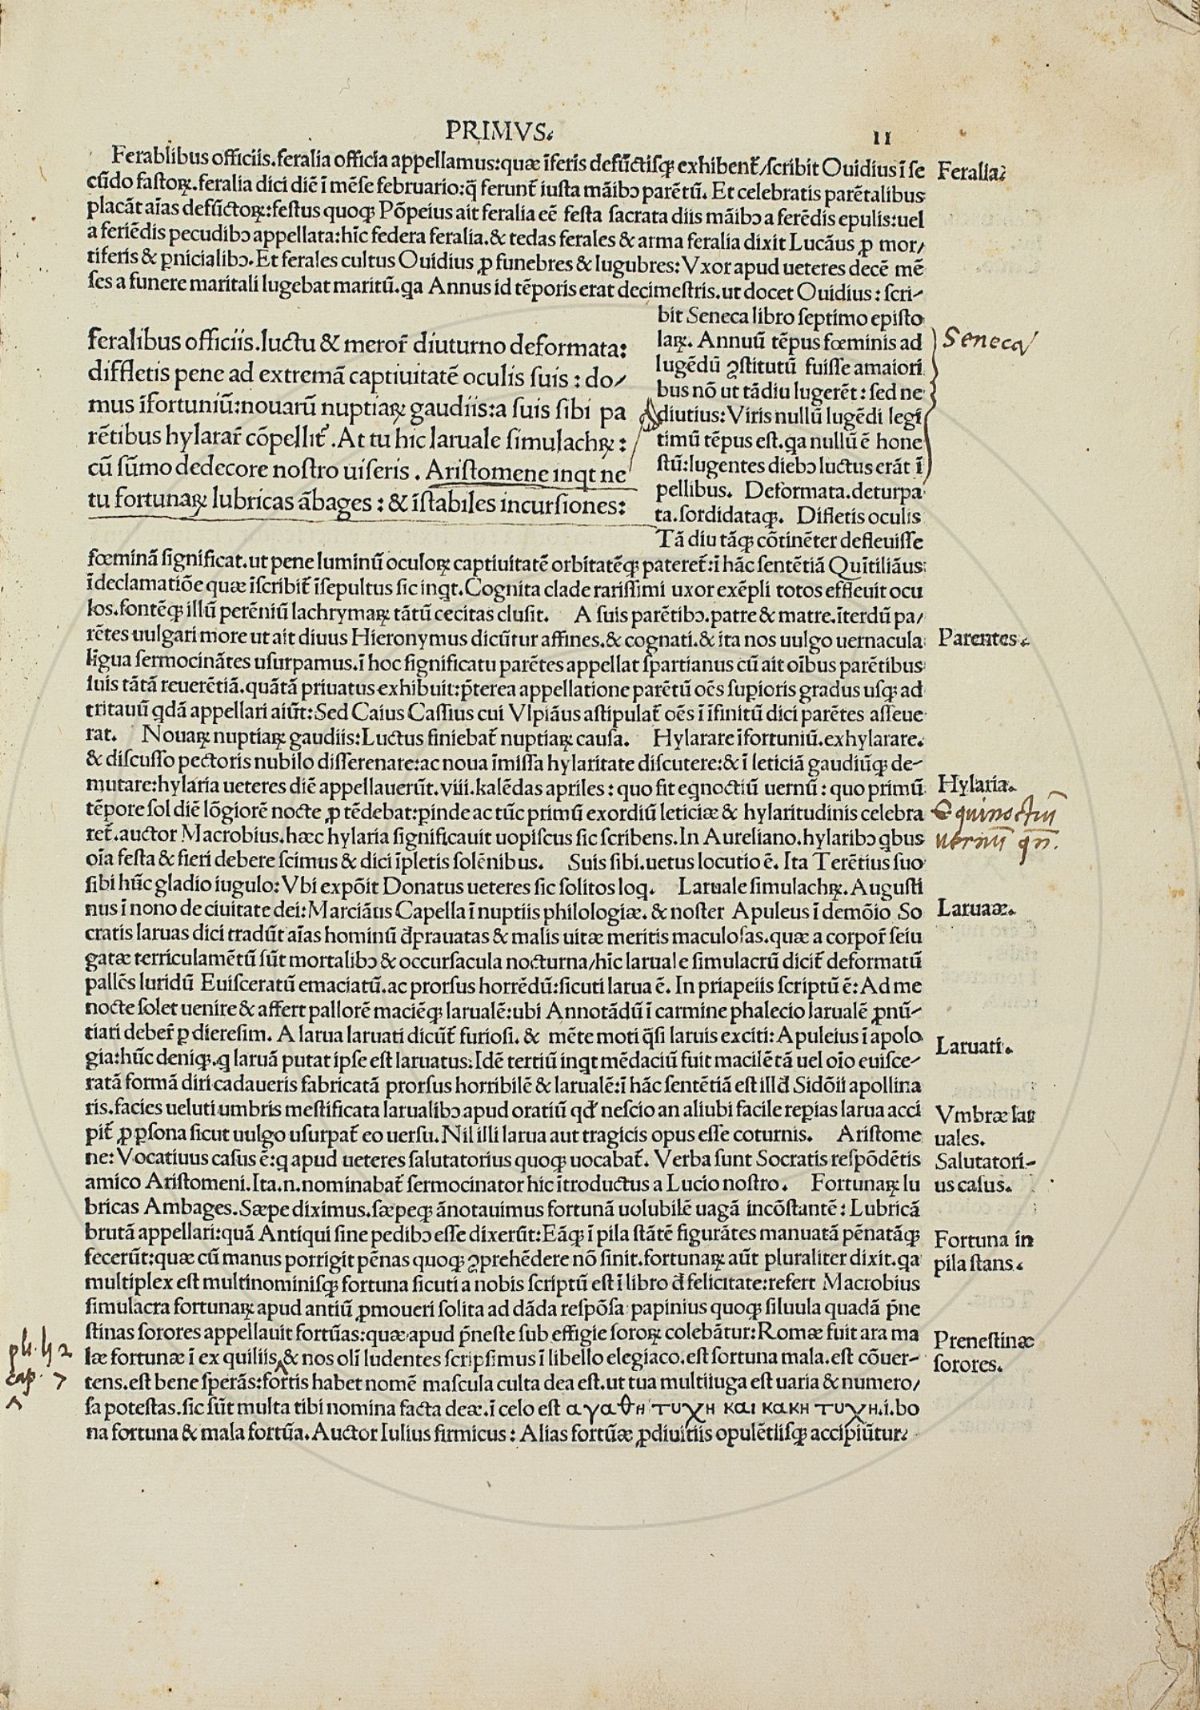 PRIMVS.
11
Ferablibus officiis.feralia officia appellamus:quæ īferis defūctisq; exhibent̄/scribit Ouidius ī se
cūdo fastoꝝ.feralia dici diē ī mēse februario:q̄ ferunt̄ iusta māibꝰ parētū. Et celebratis parētalibus
placāt aīas defūctoꝝ:festus quoq; Pōpeius ait feralia eē festa sacrata diis māibꝰ a ferēdis epulis:uel
a feriēdis pecudibꝰ appellata:hīc federa feralia.& tedas ferales & arma feralia dixit Lucāus ꝓ mor/
tiferis & ꝑnicialibꝰ. Et ferales cultus Ouidius ꝓ funebres & lugubres: Vxor apud ueteres decē mē
ses a funere maritali lugebat maritū.qa Annus id tēporis erat decimestris.ut docet Ouidius : scri-
bit Seneca libro septimo episto
laꝝ. Annuū tēpus fœminis ad
lugēdū ꝯstitutū fuisse amaiori
bus nō ut tādiu lugerēt : sed ne
diutius: Viris nullū lugēdi legī
timū tēpus est.qa nullū ē hone
stū:lugentes diebꝰ luctus erāt ī
pellibus. Deformata.deturpa
ta.sordidataq;. Difletis oculis
Tā diu tāq; cōtinēter defleuisse
feralibus officiis.luctu & meror̄ diuturno deformata:
diffletis pene ad extremā captiuitatē oculis suis : do/
mus īfortuniū:nouarū nuptiaꝝ gaudiis:a suis sibi pa
rētibus hylarar̄ cōpellit̄. At tu hic laruale simulachꝝ :
cū sūmo dedecore nostro uiseris . Aristomene inqt ne
tu fortunaꝝ lubricas ābages : & īstabiles incursiones:
fœminā significat.ut pene luminū oculoꝝ captiuitatē orbitatēq; pateret̄:ī hāc sentētiā Quītiliāus:
īdeclamatiōe quæ īscribit̄ īsepultus sic inqt. Cognita clade rarissimi uxor exēpli totos effleuit ocu
los.fontēq; illū perēniū lachrymaꝝ tātū cecitas clusit. A suis parētibꝰ.patre & matre.īterdū pa/
rētes uulgari more ut ait diuus Hieronymus dicūtur affines.& cognati.& ita nos uulgo uernacula
līgua sermocinātes usurpamus.ī hoc significatu parētes appellat spartianus cū ait oībus parētibus
suis tātā reuerētiā.quātā priuatus exhibuit:p̄terea appellatione parētū oēs supioris gradus usq; ad
tritauū qdā appellari aiūt: Sed Caius Cassius cui Vlpiāus astipulat̄ oēs ī īfinitū dici parētes asseue
rat. Nouaꝝ nuptiaꝝ gaudiis: Luctus finiebat̄ nuptiaꝝ causa. Hylarare īfortuniū.exhylarare.
& discusso pectoris nubilo disserenare:ac noua īmissa hylaritate discutere:& ī leticiā gaudiūq; de-
mutare:hylaria ueteres diē appellauerūt.viii.kalēdas apriles : quo fit eqnoctiū uernū : quo primū
tēpore sol diē lōgiorē nocte ꝓtēdebat:pinde ac tūc primū exordiū leticiæ & hylaritudinis celebra
ret̄.auctor Macrobius.hæc hylaria significauit uopiscus sic scribens.In Aureliano.hylaribꝰ qbus
oīa festa & fieri debere scimus & dici īpletis solēnibus. Suis sibi.uetus locutio ē. Ita Terētius suo
sibi hūc gladio iugulo: Vbi expōit Donatus ueteres sic solitos loq. Laruale simulachꝝ. Augusti
nus ī nono de ciuitate dei: Marciāus Capella ī nuptiis philologiæ. & noster Apuleus ī demōio So
cratis laruas dici tradūt aīas hominū dp̄rauatas & malis uitæ meritis maculosas.quæ a corpor̄ seiu
gatæ terriculamētū sūt mortalibꝰ & occursacula nocturna/hīc laruale simulacrū dicit̄ deformatū
pallēs luridū Euisceratū emaciatū.ac prorsus horrēdū:sicuti larua ē. In priapeiis scriptū ē: Ad me
nocte solet uenire & affert pallorē maciēq; larualē:ubi Annotādū ī carmine phalecio larualē ꝓnū-
tiati deber̄ ꝑ dieresim. A larua laruati dicūt̄ furiosi. & mēte moti q̄si laruis exciti: Apuleius ī apolo
gia:hūc deniq;.q laruā putat ipse est laruatus.Idē tertiū inqt mēdaciū fuit macilētā uel oīo euisce-
ratā formā diri cadaueris fabricatā prorsus horribilē & larualē:ī hāc sentētiā est illd̄ Sidōii apollina
ris.facies ueluti umbris mestificata larualibꝰ apud oratiū qd̄ nescio an aliubi facile reperias larua acci
pit̄ ꝓ ꝑsona sicut uulgo usurpat̄ eo uersu. Nil illi larua aut tragicis opus esse coturnis. Aristome
ne: Vocatiuus casus ē:q apud ueteres salutatorius quoq; uocabat̄. Verba sunt Socratis respōdētis
amico Aristomeni. Ita.n.nominabat̄ sermocinator hic ītroductus a Lucio nostro. Fortunaꝝ lu
bricas Ambages. Sæpe diximus.sæpeq; ānotauimus fortunā uolubilē uagā incōstantē : Lubricā
brutā appellari:quā Antiqui sine pedibꝰ esse dixerūt: Eāq; ī pila stātē figurātes manuatā pēnatāq;
fecerūt:quæ cū manus porrigit pēnas quoq; ꝯprehēdere nō sinit.fortunaꝝ aūt pluraliter dixit.qa
multiplex est multinominisq; fortuna sicuti a nobis scriptū est ī libro d̄ felicitate:refert Macrobius
simulacra fortunaꝝ apud antiū ꝓmoueri solita ad dāda respōsa papinius quoq; siluula quadā p̄ne
stinas sorores appellauit fortūas:quæ apud p̄neste sub effigie soroꝝ colebātur: Romæ fuit ara ma
læ fortunæ ī ex quiliis & nos olī ludentes scripsimus ī libello elegiaco.est fortuna mala.est cōuer-
tens.est bene sperās:fortis habet nomē mascula culta dea est.ut tua multiiuga est uaria & numero/
sa potestas.sic sūt multa tibi nomina facta deæ.ī celo est αγαθη τυχη και κακη τυχη.i.bo
na fortuna & mala fortūa. Auctor Iulius firmicus : Alias fortūæ ꝓdiuitiis opulētiisq; accipiūtur.
Feralia.
Seneca
Parentes.
Hylaria.
Equinoctiū
uernū qn̄.
Laruæ.
Laruati.
Vmbræ lar
uales.
Salutatori-
us casus.
Fortuna in
pila stans.
Prenestinæ
sorores.
cap. 7